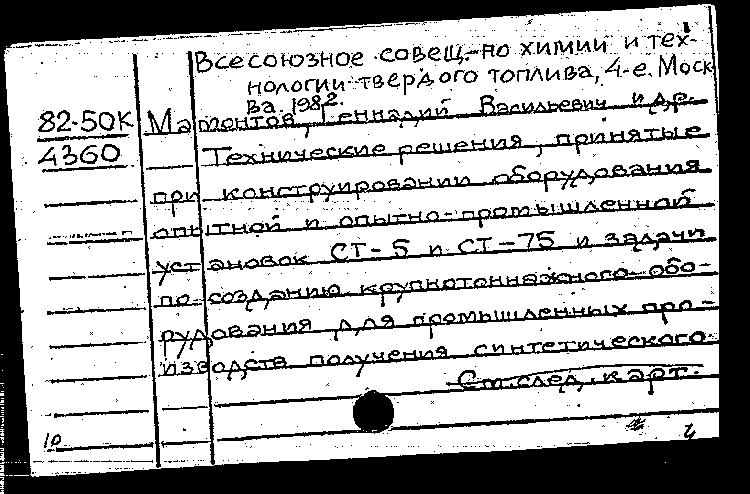 Всесоюзное совещ.-по химии и тех-
нологии твердого топлива, 4-е. Моск
ва. 1982.
82-50К Мамонтов, Геннадий Васильевич и др.
4360 Технические решения, принятые
при конструировании оборудования
опытной и опытно-промышленной
установок СТ-5 и СТ-75 и задачи
по созданию крупнотоннажного обо-
рудования для промышленных про-
изводств получения синтетического
См. след. карт.
10